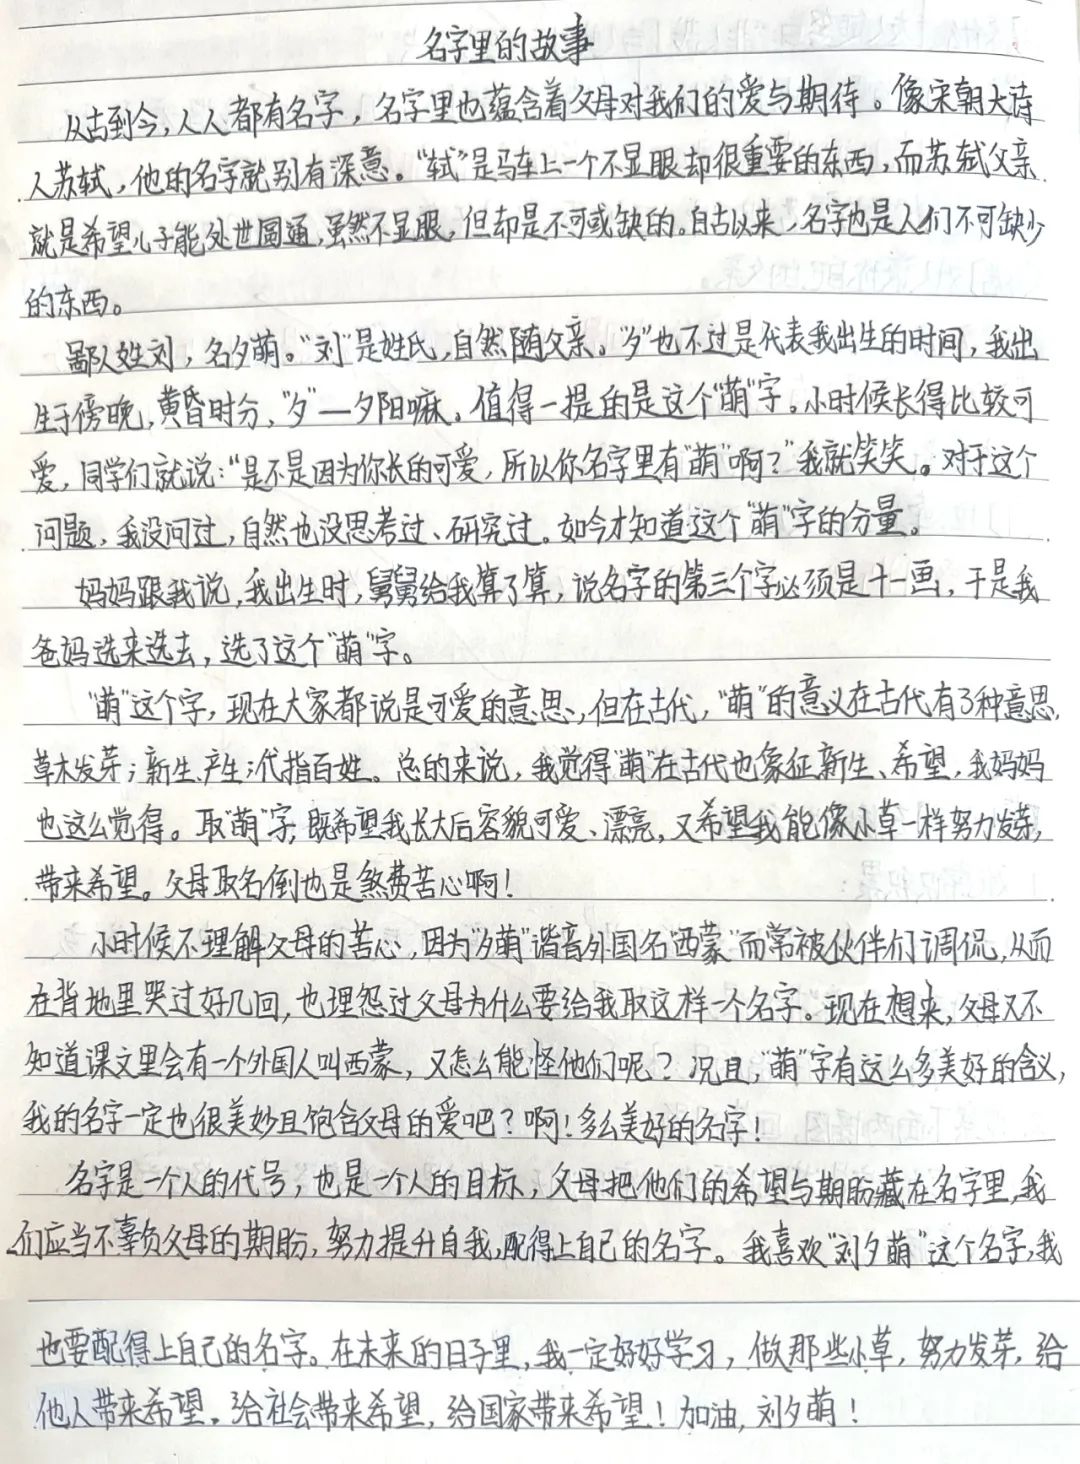 名字里的故事
从古到今，人人都有名字，名字里也蕴含着父母对我们的爱与期待。像宋朝大诗
人苏轼，他的名字就别有深意。“轼”是马车上一个不显眼却很重要的东西，而苏轼父亲
就是希望儿子能处世圆通，虽然不显眼，但却是不可或缺的。自古以来，名字也是人们不可缺少
的东西。
鄙人姓刘，名夕萌。“刘”是姓氏，自然随父亲。“夕”也不过是代表我出生的时间，我出
生于傍晚，黄昏时分，“夕”—夕阳嘛。值得一提的是这个“萌”字。小时候长得比较可
爱，同学们就说：“是不是因为你长的可爱，所以你名字里有“萌”啊？”我就笑笑。对于这个
问题，我没问过，自然也没思考过、研究过。如今才知道这个“萌”字的分量。
妈妈跟我说，我出生时，舅舅给我算了算，说名字的第三个字必须是十一画，于是我
爸妈选来选去，选了这个“萌”字。
“萌”这个字，现在大家都说是可爱的意思，但在古代，“萌”的意义在古代有3种意思，
草木发芽；新生产生；代指百姓。总的来说，我觉得“萌”在古代也象征新生、希望，我妈妈
也这么觉得。取“萌”字，既希望我长大后容貌可爱、漂亮，又希望我能像小草一样努力发芽，
带来希望。父母取名倒也是煞费苦心啊！
小时候不理解父母的苦心，因为“夕萌”谐音外国名“西蒙”而常被伙伴们调侃，从而
在背地里哭过好几回，也埋怨过父母为什么要给我取这样一个名字。现在想来，父母又不
知道课文里会有一个外国人叫西蒙，又怎么能怪他们呢？况且，“萌”字有这么多美好的含义，
我的名字一定也很美妙且饱含父母的爱吧？啊！多么美好的名字！
名字是一个人的代号，也是一个人的目标，父母把他们的希望与期盼藏在名字里，我
们应当不辜负父母的期盼，努力提升自我，配得上自己的名字。我喜欢“刘夕萌”这个名字，我
也要配得上自己的名字。在未来的日子里，我一定好好学习，做那些小草，努力发芽，给
他人带来希望，给社会带来希望，给国家带来希望！加油，刘夕萌！